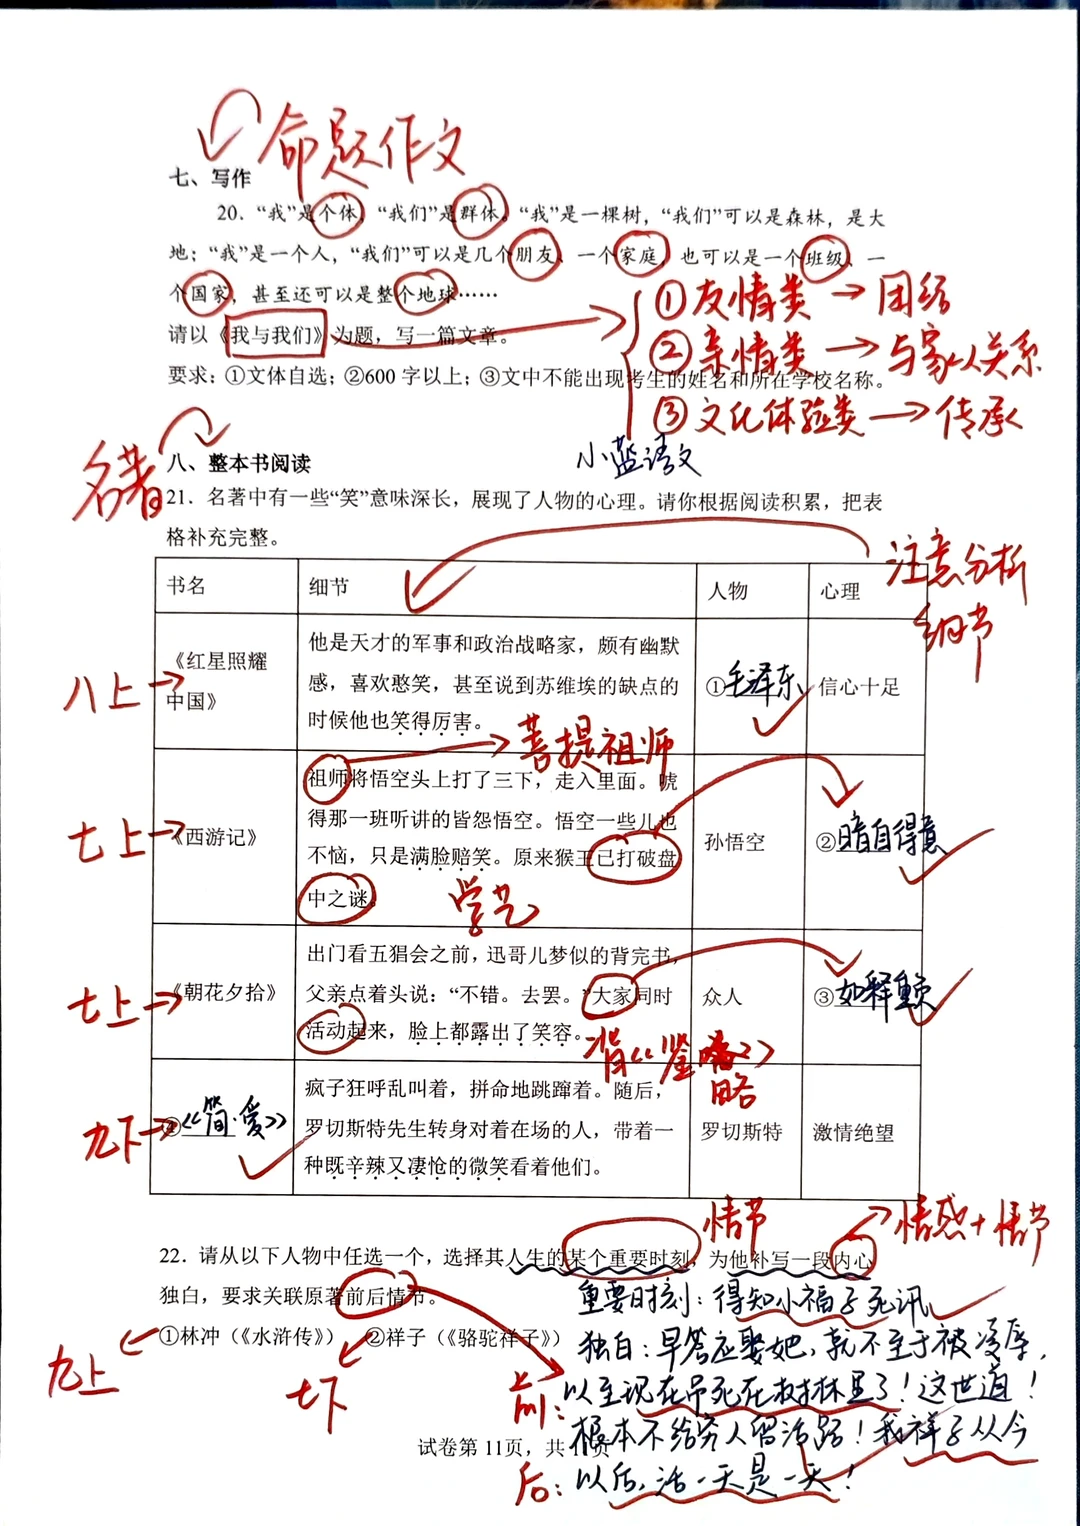 命题作文
七、写作
20．“我”是个体，“我们”是群体。“我”是一棵树，“我们”可以是森林，是大
地；“我”是一个人，“我们”可以是几个朋友、一个家庭，也可以是一个班级、一
个国家，甚至还可以是整个地球……
①友情类→团结
请以《我与我们》为题，写一篇文章。
②亲情类→与家人关系
要求：①文体自选；②600 字以上；③文中不能出现考生的姓名和所在学校名称。
③文化体验类→传承
小蓝语文
名著
八、整本书阅读
21．名著中有一些“笑”意味深长，展现了人物的心理。请你根据阅读积累，把表
格补充完整。
注意分析
细节
书名 细节 人物 心理
八上→
《红星照耀
中国》
他是天才的军事和政治战略家，颇有幽默
感，喜欢憨笑，甚至说到苏维埃的缺点的
时候他也笑得厉害。
①毛泽东
信心十足
菩提祖师
七上→
《西游记》
祖师将悟空头上打了三下，走入里面。唬
得那一班听讲的皆怨悟空。悟空一些儿也
不恼，只是满脸赔笑。原来猴王已打破盘
中之谜。
学艺
孙悟空
②暗自得意
七上→
《朝花夕拾》
出门看五猖会之前，迅哥儿梦似的背完书，
父亲点着头说：“不错。去罢。”大家同时
活动起来，脸上都露出了笑容。
背《鉴略》
略
众人
③如释重负
九下→
④《简·爱》
疯子狂呼乱叫着，拼命地跳蹿着。随后，
罗切斯特先生转身对着在场的人，带着一
种既辛辣又凄怆的微笑看着他们。
罗切斯特
激情绝望
情节
情感+情节
22．请从以下人物中任选一个，选择其人生的某个重要时刻，为他补写一段内心
独白，要求关联原著前后情节。
重要时刻：得知小福子死讯
①林冲（《水浒传》） ②祥子（《骆驼祥子》）
九上
七下
独白：早答应娶她，就不至于被凌辱，
前：以至现在吊死在树林里了！这世道！
根本不给穷人留活路！我祥子从今
试卷第 11页，共 11页
后：以后，活一天是一天！